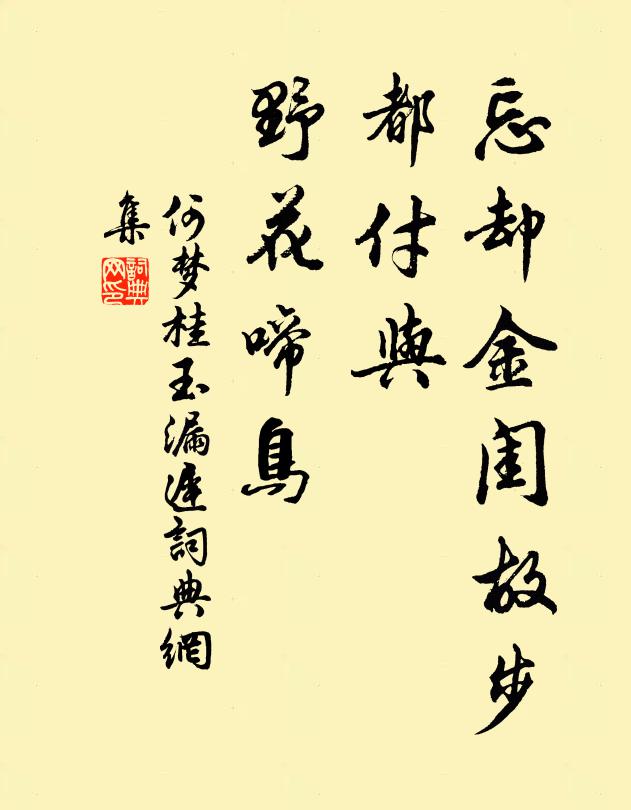 忘却金闺故步
都付與
野花啼鳥
何梦桂玉漏遲詞典網
集
詞典网印